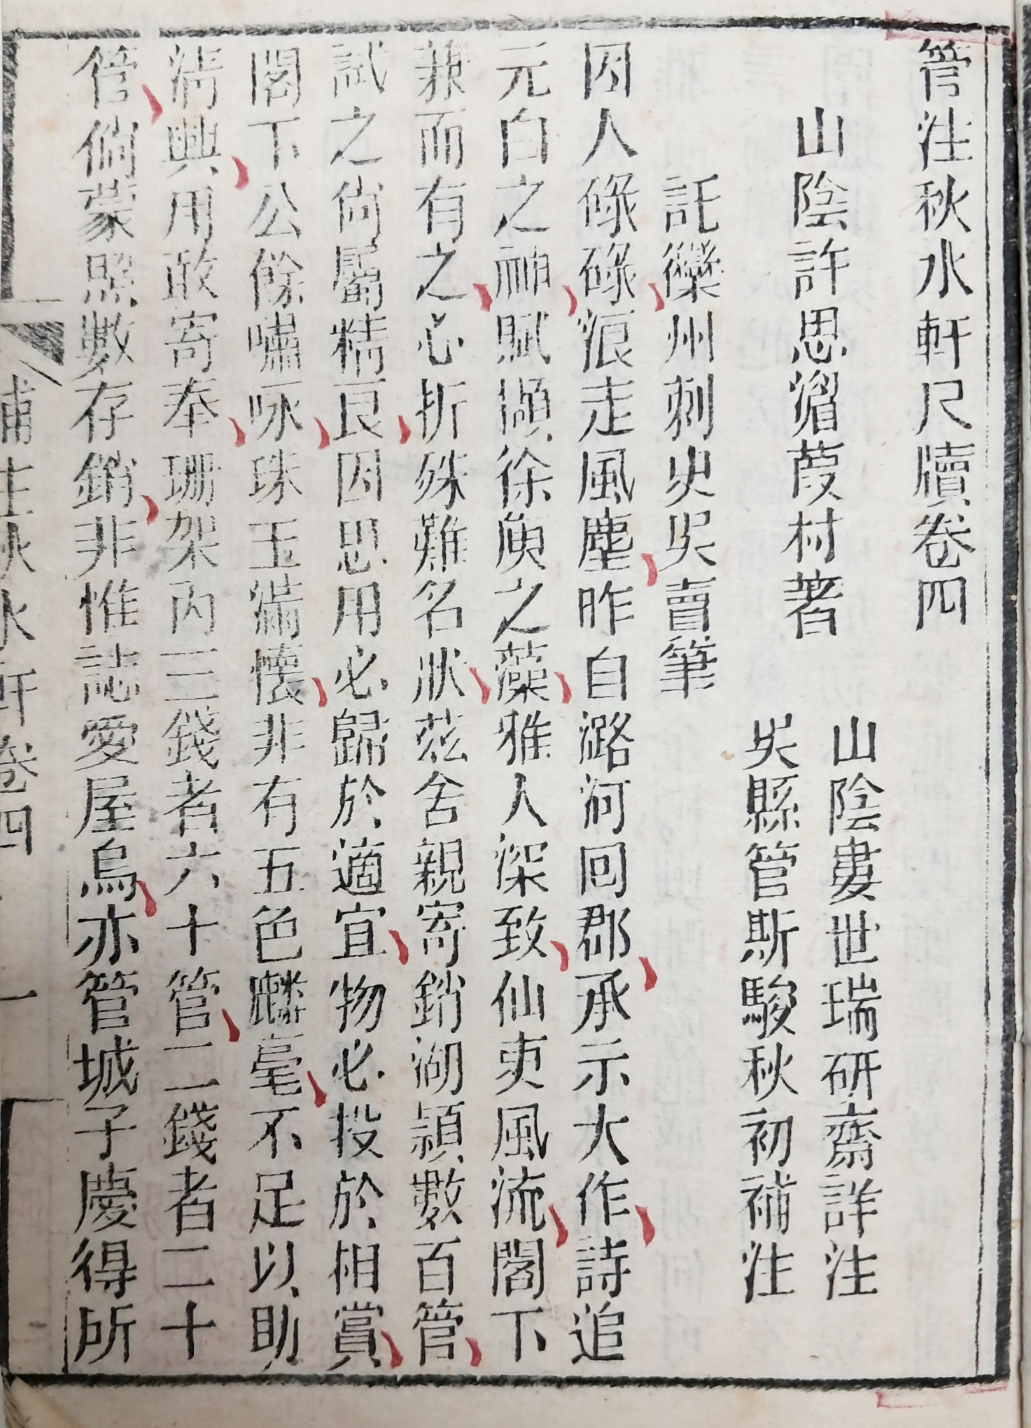 管注秋水軒尺牘卷四
山陰許思湄葭村著
山陰婁世瑞研齋詳注
吳縣管斯駿秋初補注
託欒州刺史吳賣筆
因人碌碌浪走風塵昨自潞河回郡承示大作詩追
元白之神賦擷徐庾之藻雅人深致仙吏風流閣下
兼而有之心折殊難名狀茲舍親寄銷湖穎數百管
試之尚屬精良因思用必歸於適宜物必投於相賞
閣下公餘嘯咏珠玉滿懷非有五色麟毫不足以助
清興用敢寄奉珊架內三錢者六十管二錢者二十
管倘蒙照數存銷非惟誌愛屋烏亦管城子慶得所
補注秋水軒卷四
一